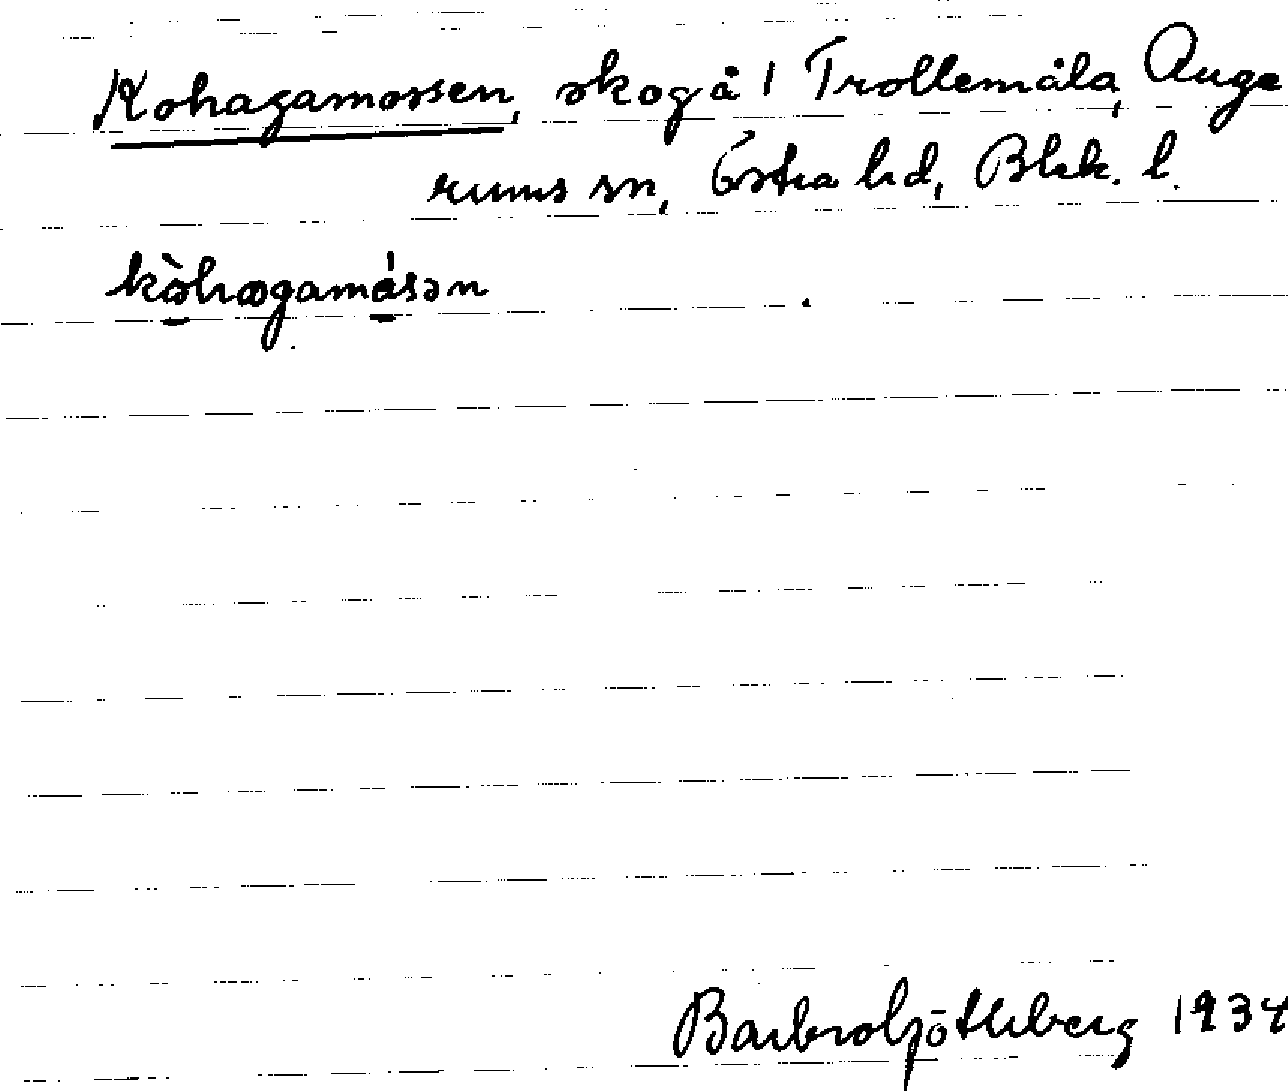 Kohagamossen, skog å 1 Trollemåla, Auge
rums sn, Östra hd, Blek. l.
kòhagamásən
Barbro Götheberg 1934